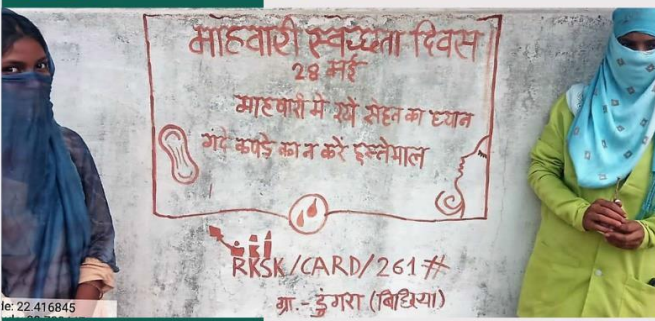 माहवारी स्वच्छता दिवस
28 मई
माहवारी में रखें सेहत का ध्यान
गंदे कपड़े का न करें इस्तेमाल
RKSK/CARD/261#
ग्रा.- डुंगरा (बिछिया)
de: 22.416845